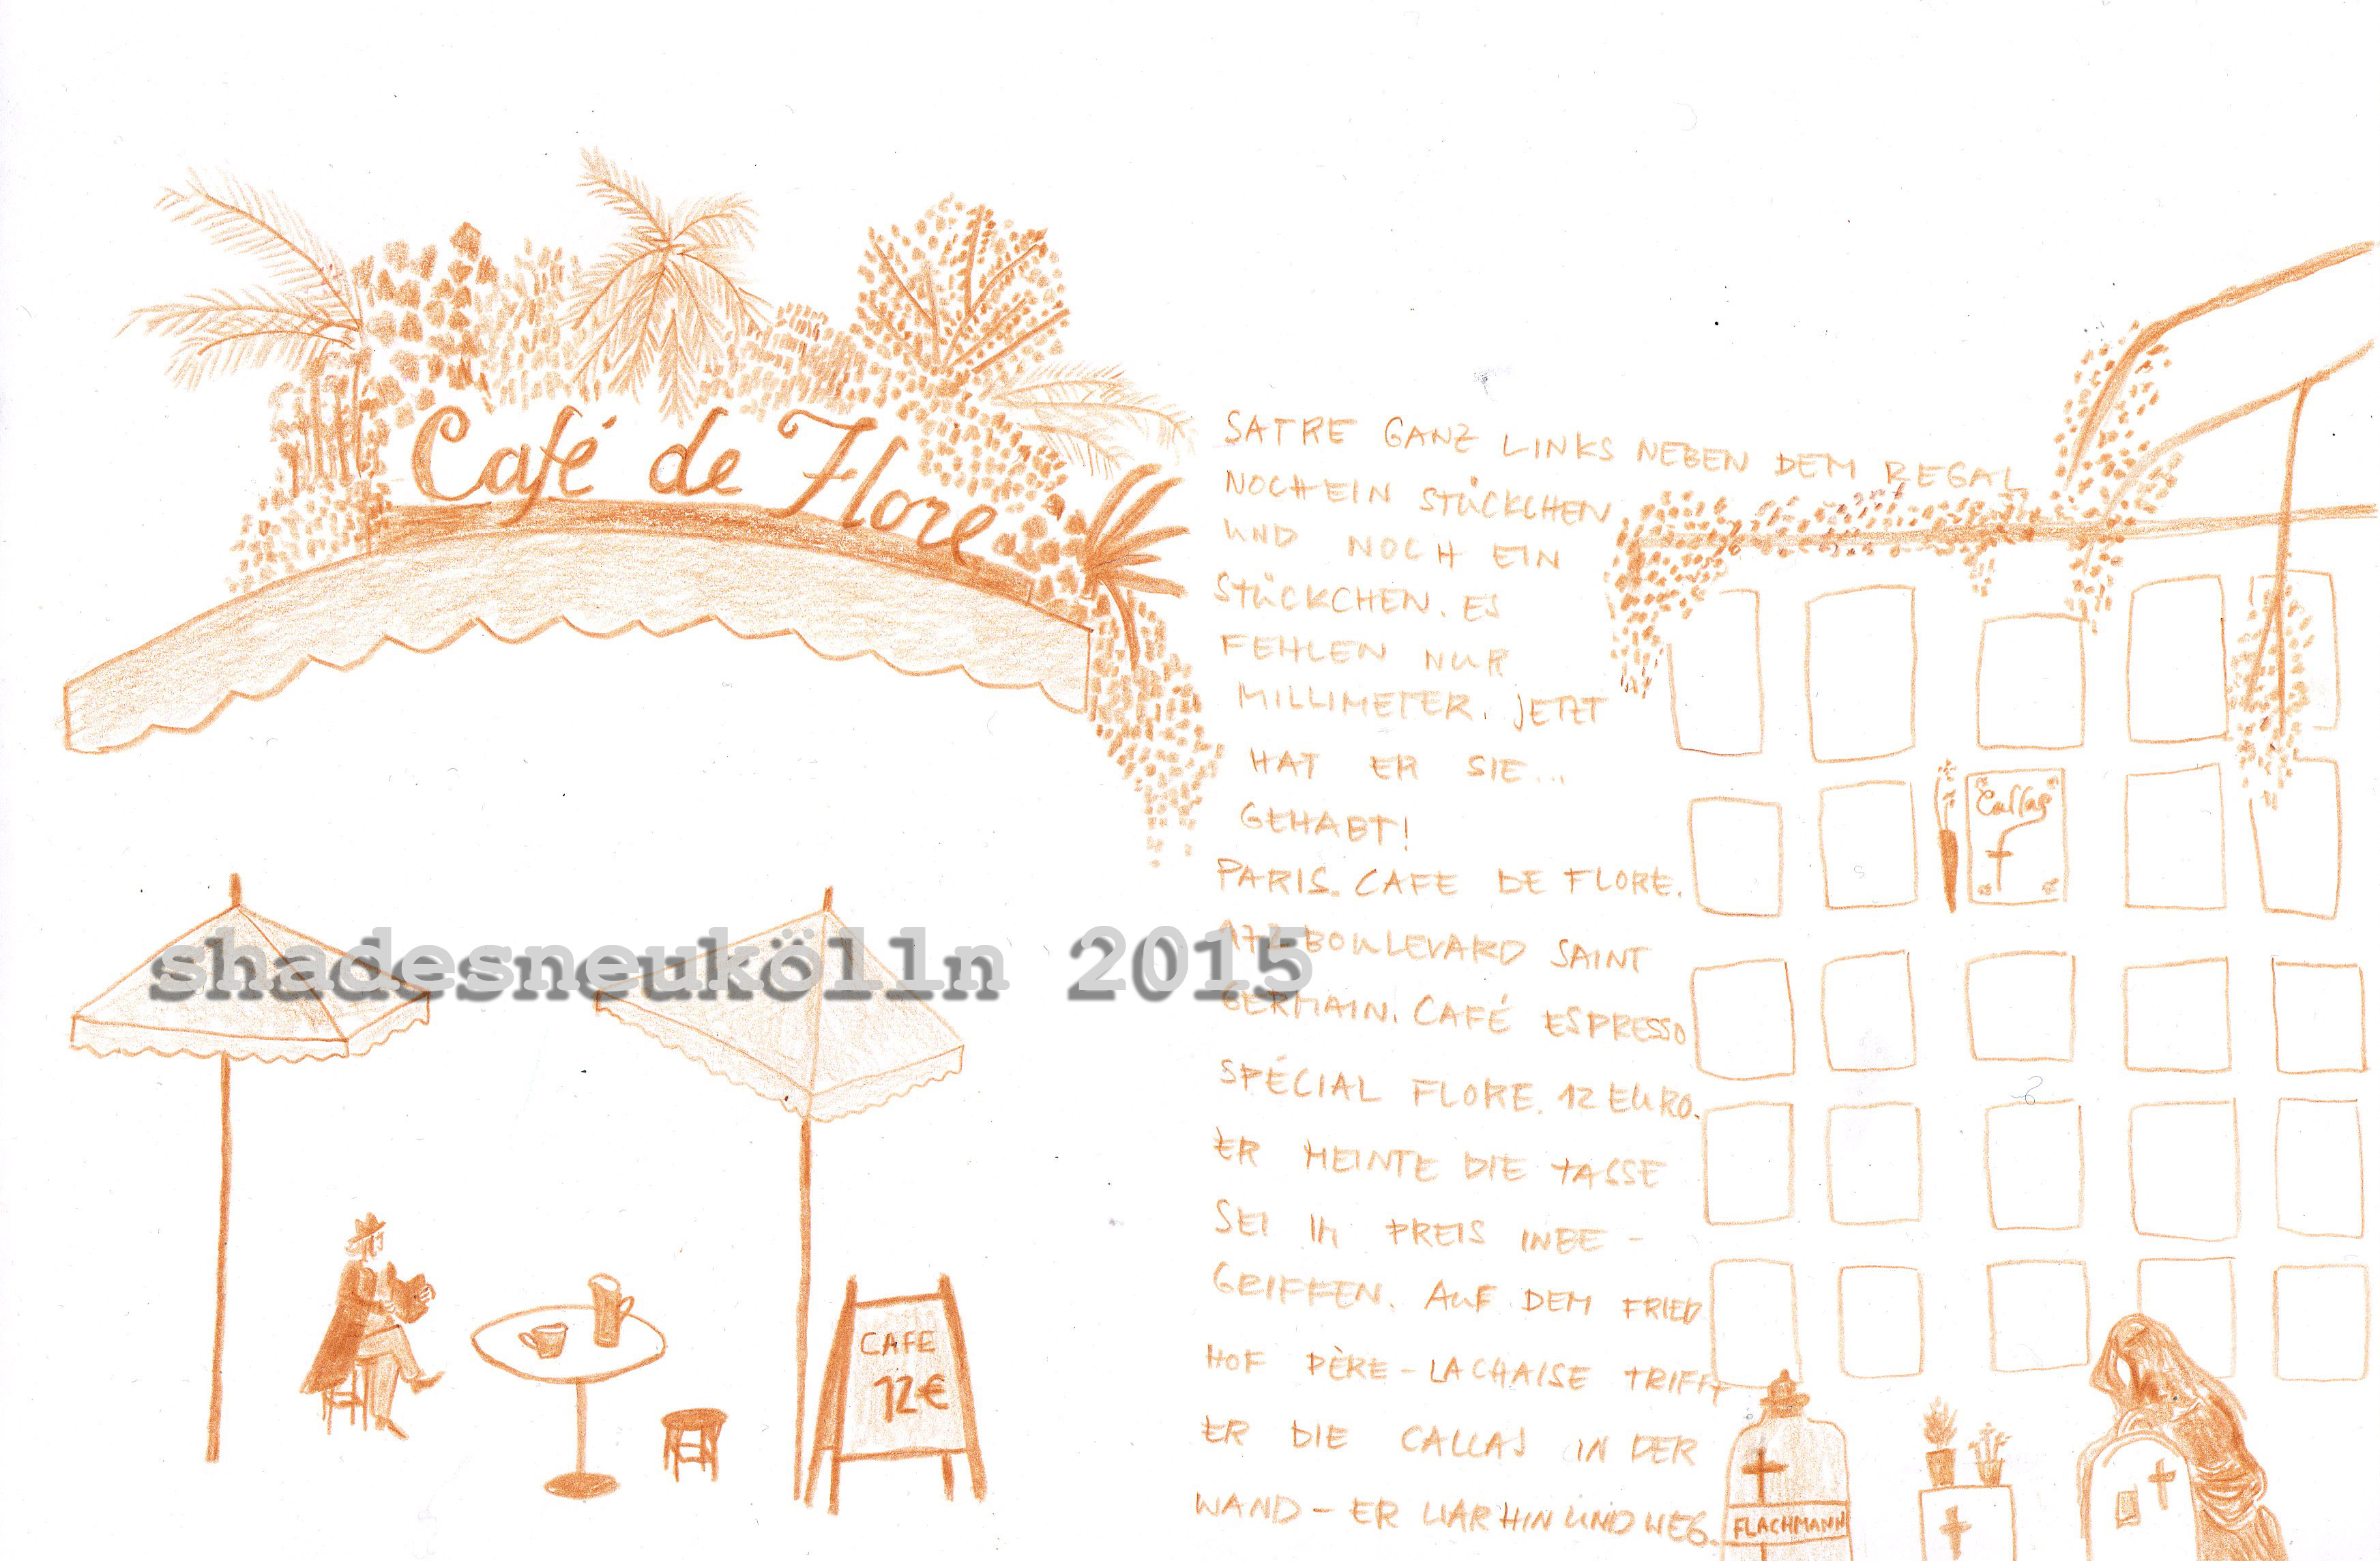 Café de Flore
SATRE GANZ LINKS NEBEN DEM REGAL
NOCH EIN STÜCKCHEN
UND NOCH EIN
STÜCKCHEN. ES
FEHLEN NUR
MILLIMETER. JETZT
HAT ER SIE...
GEHABT!
PARIS. CAFE DE FLORE.
172 BOULEVARD SAINT
GERMAIN. CAFÉ ESPRESSO
SPÉCIAL FLORE. 12 EURO.
ER MEINTE DIE TASSE
SEI IM PREIS INBE-
GRIFFEN. AUF DEM FRIED
HOF PÈRE-LACHAISE TRIFFT
ER DIE CALLAS IN DER
WAND - ER WAR HIN UND WEG.
Callas
shadesneukölln 2015
CAFE
12€
FLACHMANN